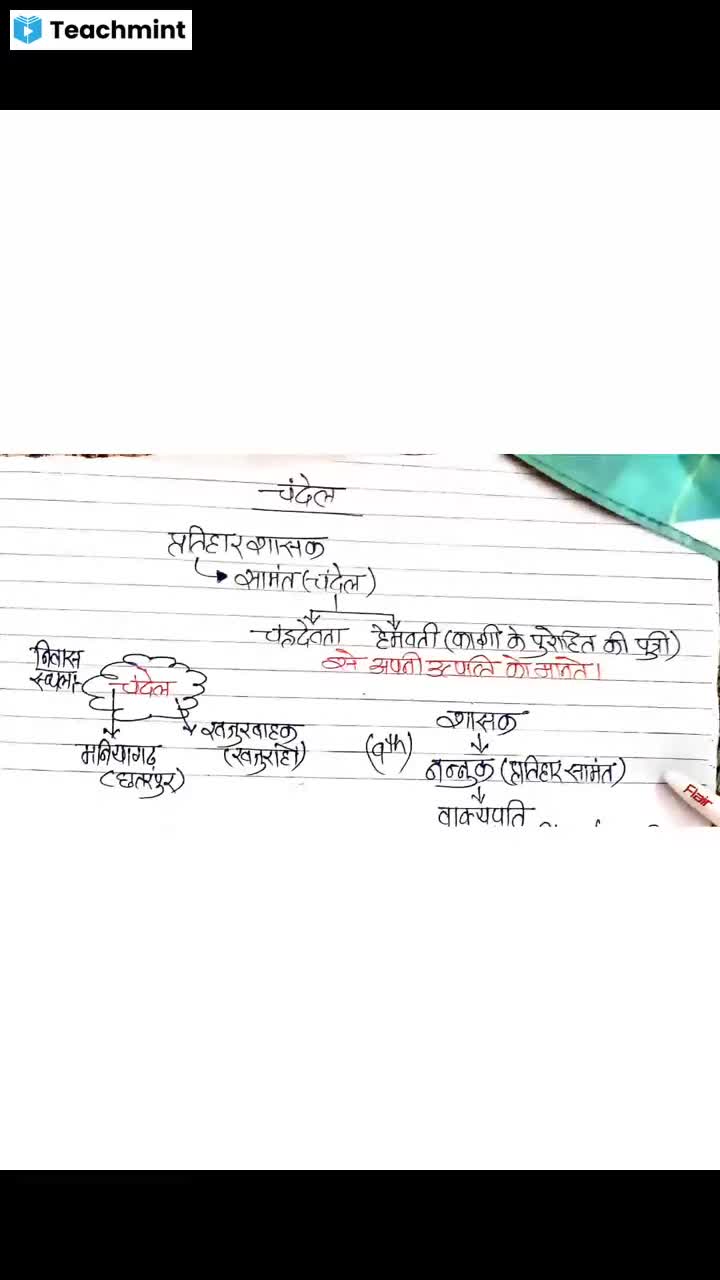 Teachmint
चंदेल
प्रतिहार शासक
सामंत (चंदेल)
चन्द्रदेवता हेमवती (काशी के पुरोहित की पुत्री)
से अपनी उत्पत्ति को मानते।
निवास
स्थल:-
चंदेल
मनियागढ़
(छतरपुर)
खजुरवाहक
(खजुराहो)
शासक
(9th) नन्नुक (प्रतिहार सामंत)
वाक्यपति
Flair